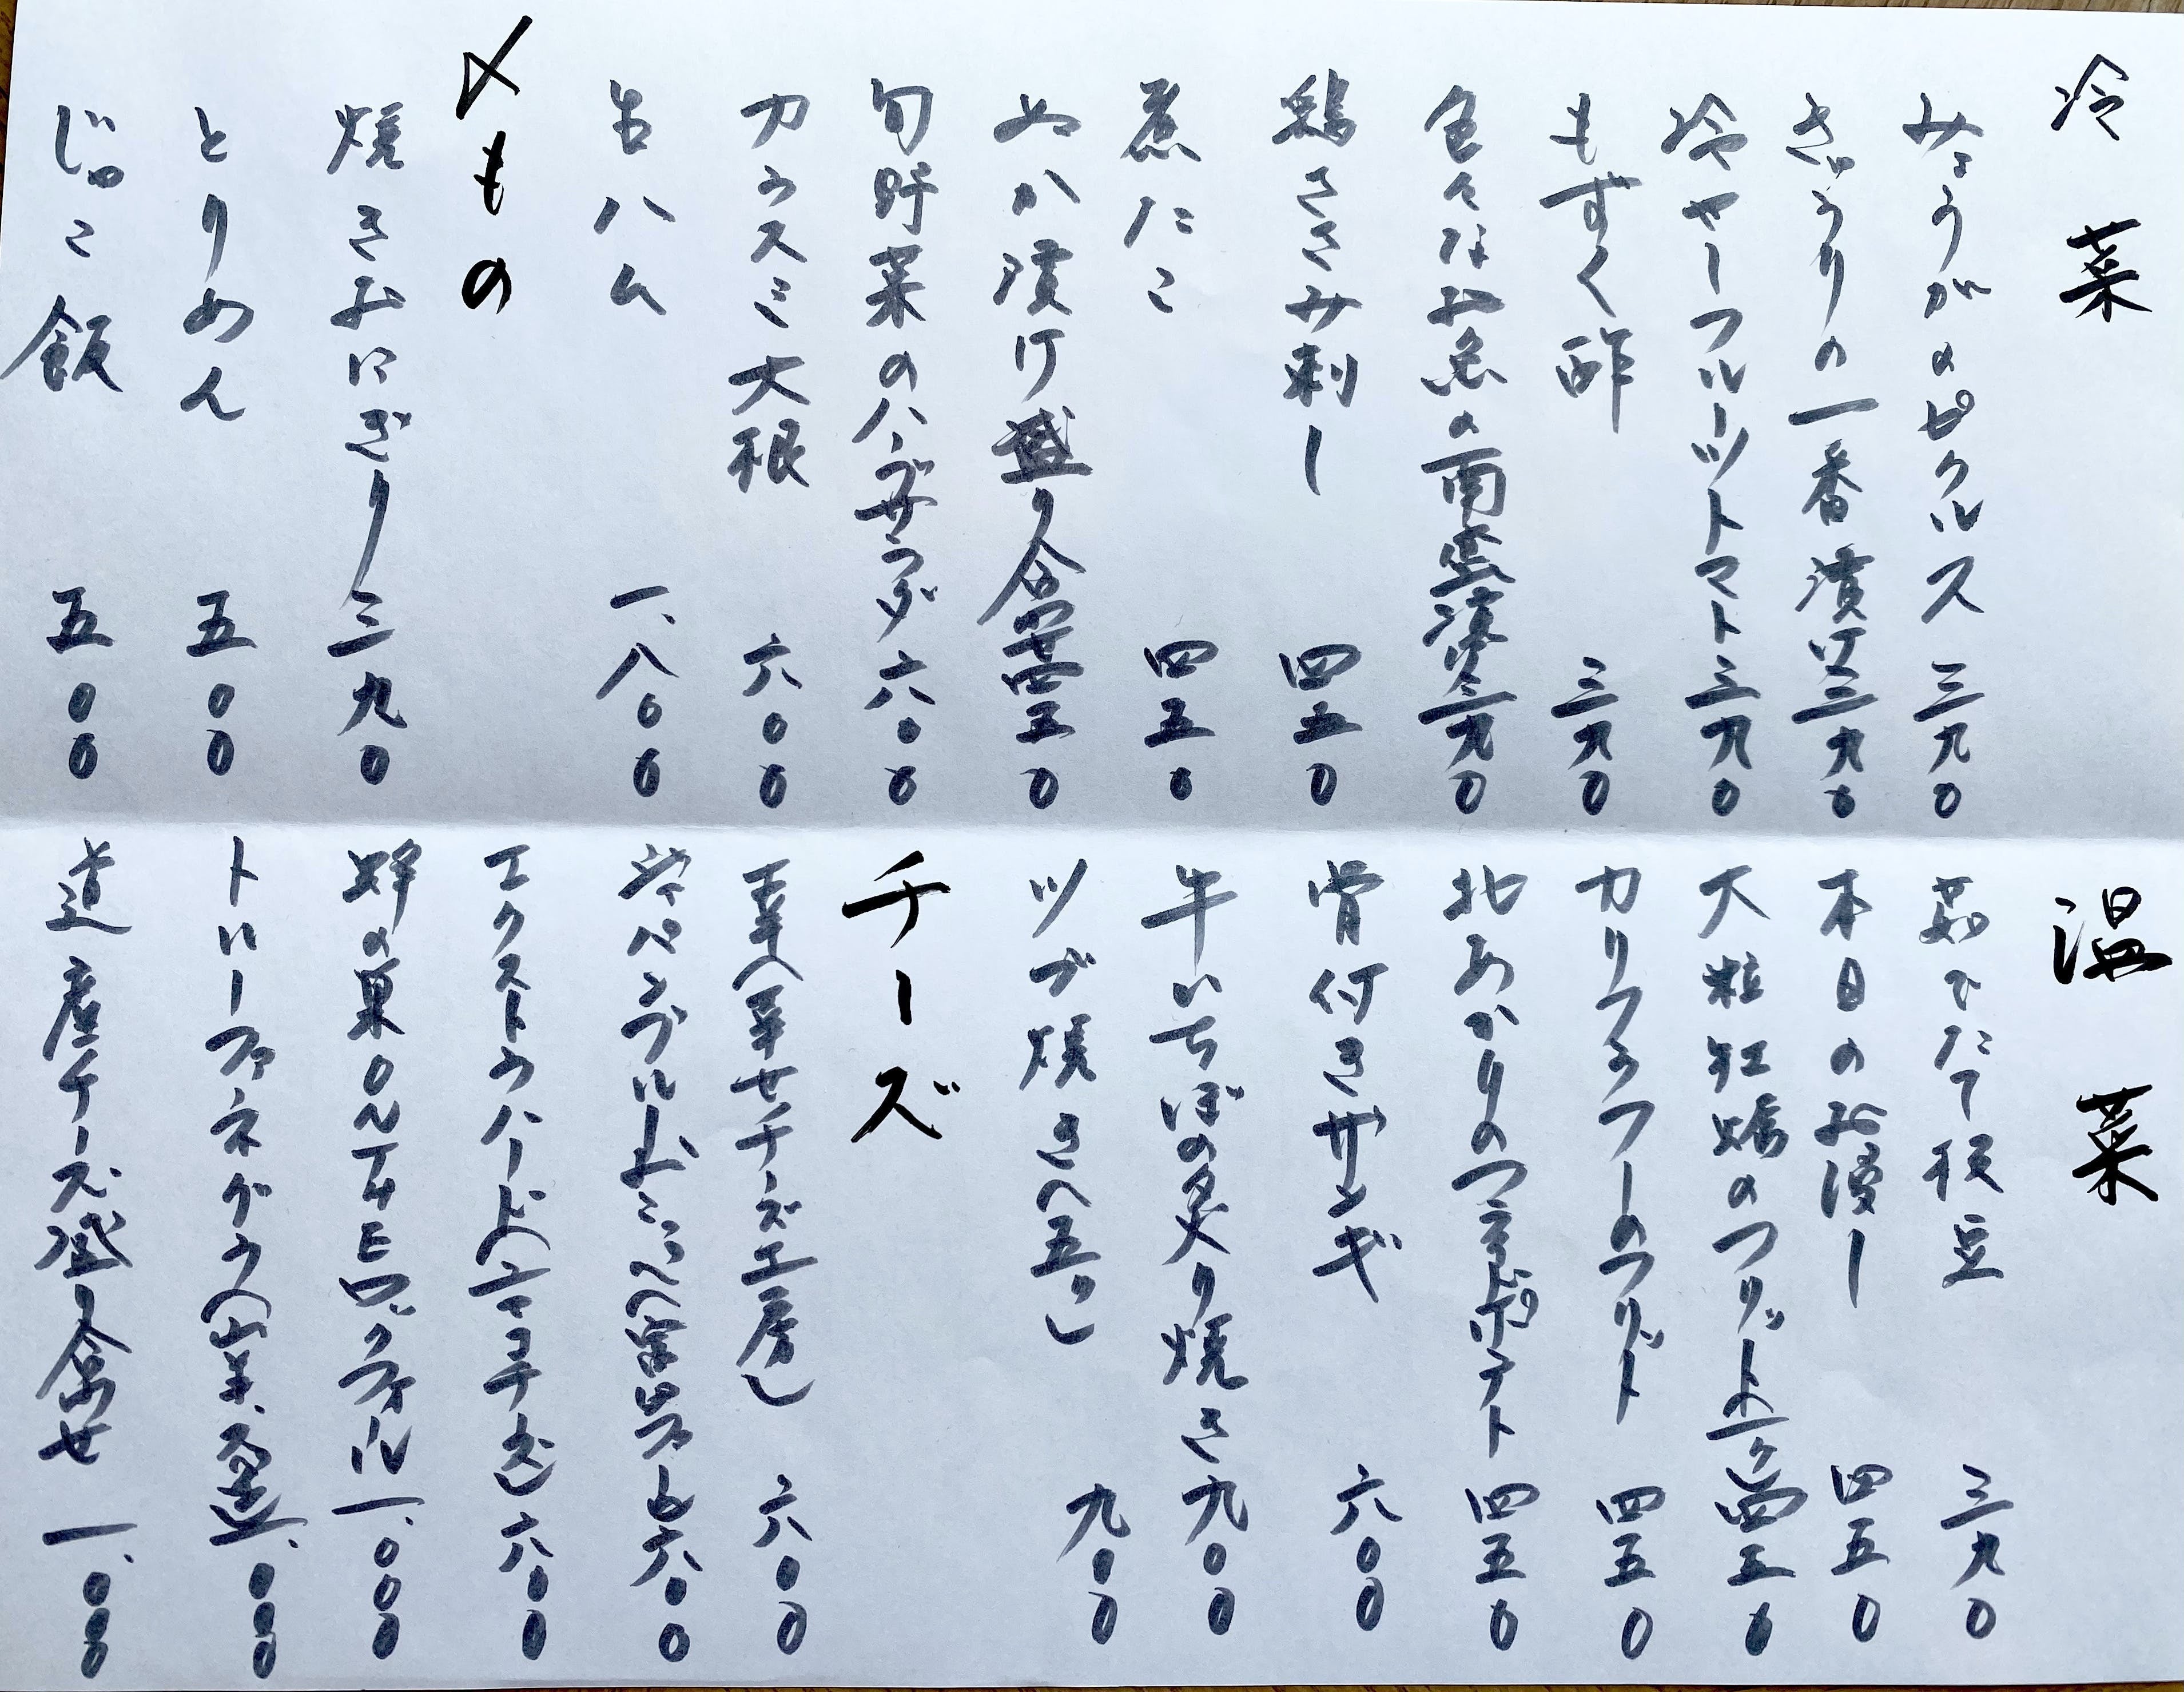 冷菜
みょうがのピクルス 三九〇
きゅうりの一番漬け 三九〇
冷やしフルーツトマト 三九〇
もずく酢 三九〇
色々なお魚の南蛮漬け 三九〇
鶏ささみ刺し 四五〇
煮たこ 四五〇
ぬか漬け盛り合わせ 四五〇
旬野菜のハーブサラダ 六〇〇
カラスミ大根 六〇〇
生ハム 一、八〇〇
〆もの
焼きおにぎり 三九〇
とりめん 五〇〇
じゃこ飯 五〇〇
温菜
茹でたて枝豆 三九〇
本日のお浸し 四五〇
大粒紅
のフリット 四五〇
カリフラワーのフリット 四五〇
北あかりのフライドポテト 四五〇
骨付きザンギ 六〇〇
牛いちぼの炙り焼き 九〇〇
ツブ焼き(五ケ) 九〇〇
チーズ
幸(幸せチーズ工房) 六〇〇
六〇〇
エクストラハード(ニセコチーズ) 六〇〇
蜂の巣
一、〇〇〇
トリュフ
一、〇〇〇
道産チーズ盛り合わせ 一、〇〇〇